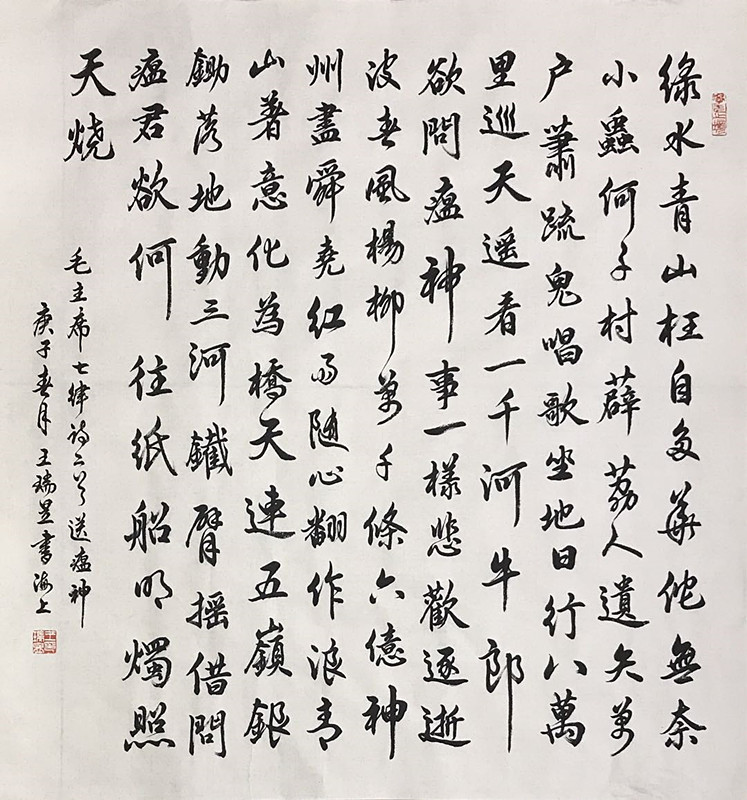 綠水青山枉自多華佗無奈
小蟲何千村薜荔人遺矢萬
户蕭疏鬼唱歌坐地日行八萬
里巡天遥看一千河牛郎
欲問瘟神事一樣悲歡逐逝
波春風楊柳萬千條六億神
州盡舜堯紅雨隨心翻作浪青
山著意化為橋天連五嶺銀
鋤落地動三河鐵臂摇借問
瘟君欲何往紙船明燭照
天燒
毛主席七律詩二首送瘟神
庚子春月王瑞昱書海上